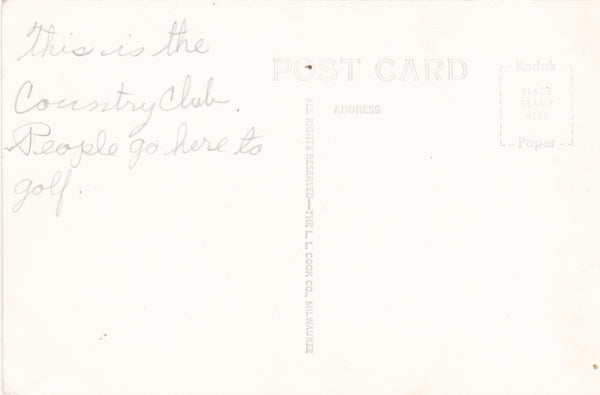 this is the
Country Club.
People go here to
golf.
POST CARD
ADDRESS
Kodak
PLACE
STAMP
HERE
Paper
ALL RIGHTS RESERVED—THE L. L. COOK CO., MILWAUKEE